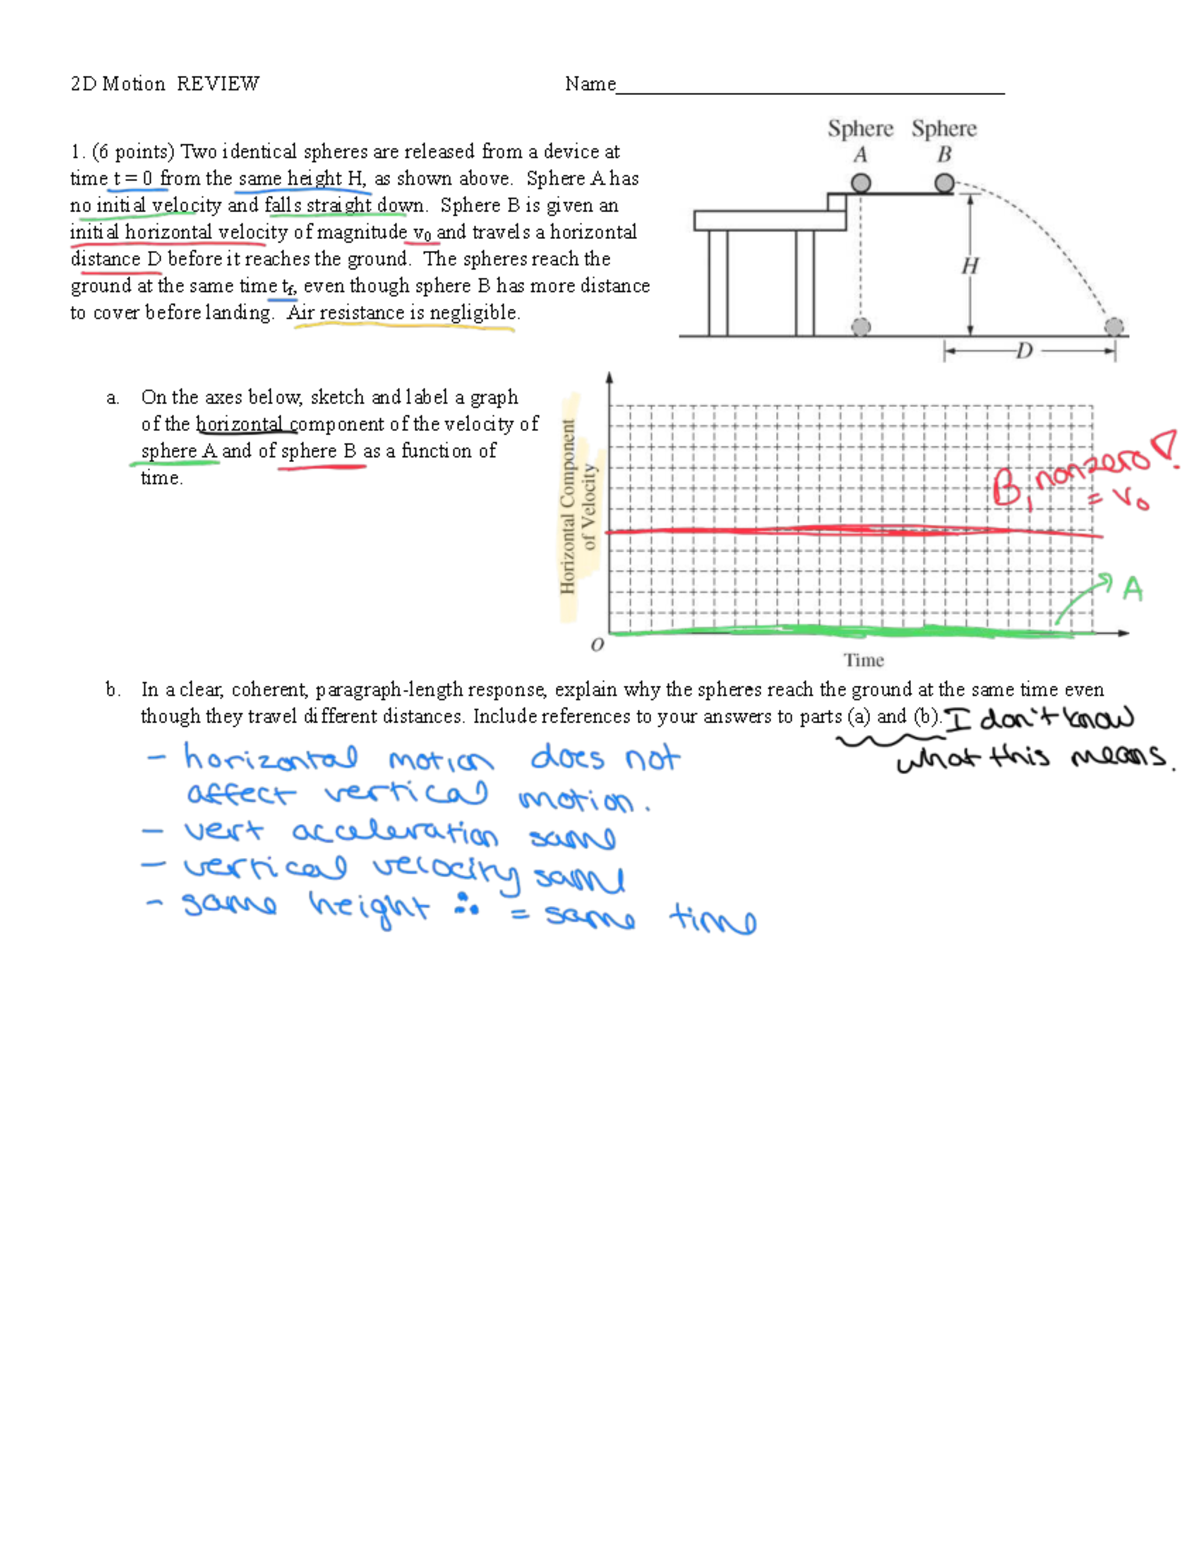 2D Motion REVIEW Name
Sphere Sphere
A B
1. (6 points) Two identical spheres are released from a device at
time t = 0 from the same height H, as shown above. Sphere A has
no initial velocity and falls straight down. Sphere B is given an
initial horizontal velocity of magnitude v0 and travels a horizontal
distance D before it reaches the ground. The spheres reach the
ground at the same time tf, even though sphere B has more distance
to cover before landing. Air resistance is negligible.
H
D
a. On the axes below, sketch and label a graph
of the horizontal component of the velocity of
sphere A and of sphere B as a function of
time.
Horizontal Component
of Velocity
B, nonzero!
= v0
A
O
Time
b. In a clear, coherent, paragraph-length response, explain why the spheres reach the ground at the same time even
though they travel different distances. Include references to your answers to parts (a) and (b). I don't know
what this means.
- horizontal motion does not
affect vertical motion.
- vert acceleration same
- vertical velocity same
- same height ∴ = same time